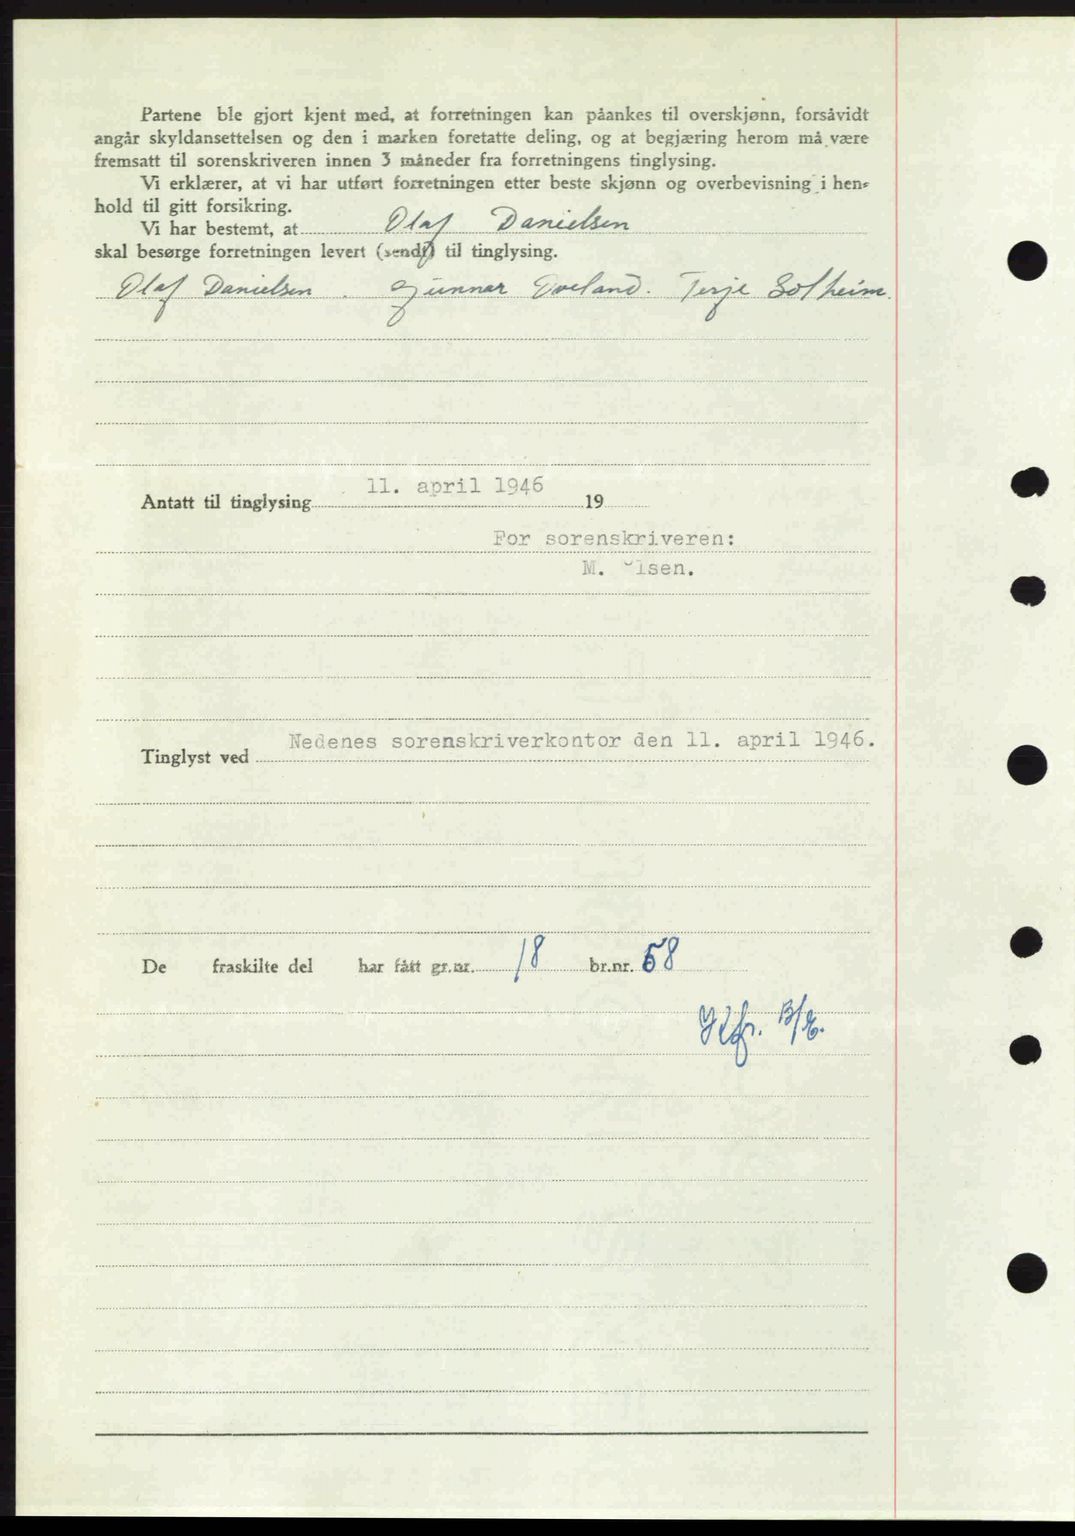 Partene ble gjort kjent med, at forretningen kan påankes til overskjønn, forsåvidt
angår skyldansettelsen og den i marken foretatte deling, og at begjæring herom må være
fremsatt til sorenskriveren innen 3 måneder fra forretningens tinglysing.
Vi erklærer, at vi har utført forretningen etter beste skjønn og overbevisning i hen-
hold til gitt forsikring.
Vi har bestemt, at Olaf Danielsen
skal besørge forretningen levert (sendt) til tinglysing.
Olaf Danielsen. Gunnar Oveland. Terje Solheim.
Antatt til tinglysing 11. april 1946 19
For sorenskriveren:
M. Olsen.
Tinglyst ved Nedenes sorenskriverkontor den 11. april 1946.
De fraskilte del har fått gr.nr. 18 br.nr. 58
B/E.